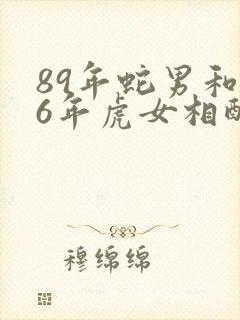 89年蛇男和
6年虎女相
穆绵绵